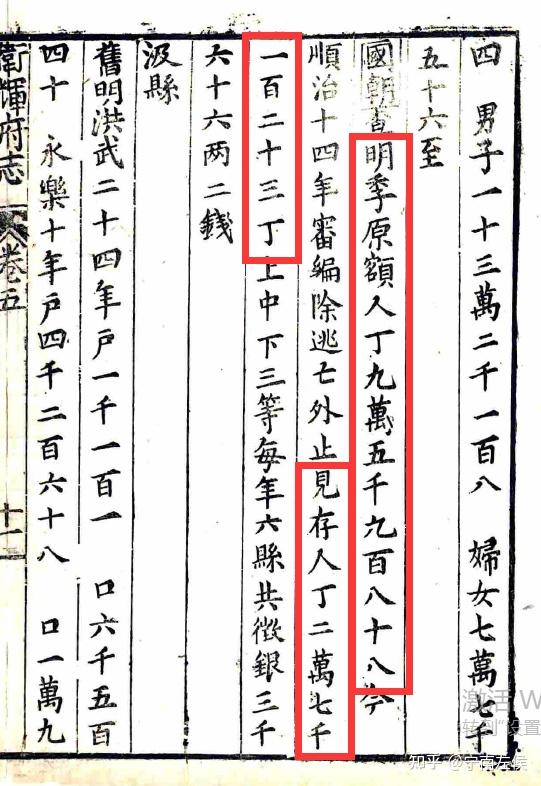 四　男子一十三萬二千一百八　婦女七萬七千
五十六至
國朝查明季原額人丁九萬五千九百八十八今
順治十四年審編除逃亡外止見存人丁二萬七千
一百二十三丁上中下三等每年六縣共徵銀三千
六十六两二錢
汲縣
舊明洪武二十四年戸一千一百一　口六千五百
四十　永樂十年戸四千二百六十八　口一萬九
衛輝府志　卷五　十一
激活 W
转到"设置
知乎 @宁南左侯